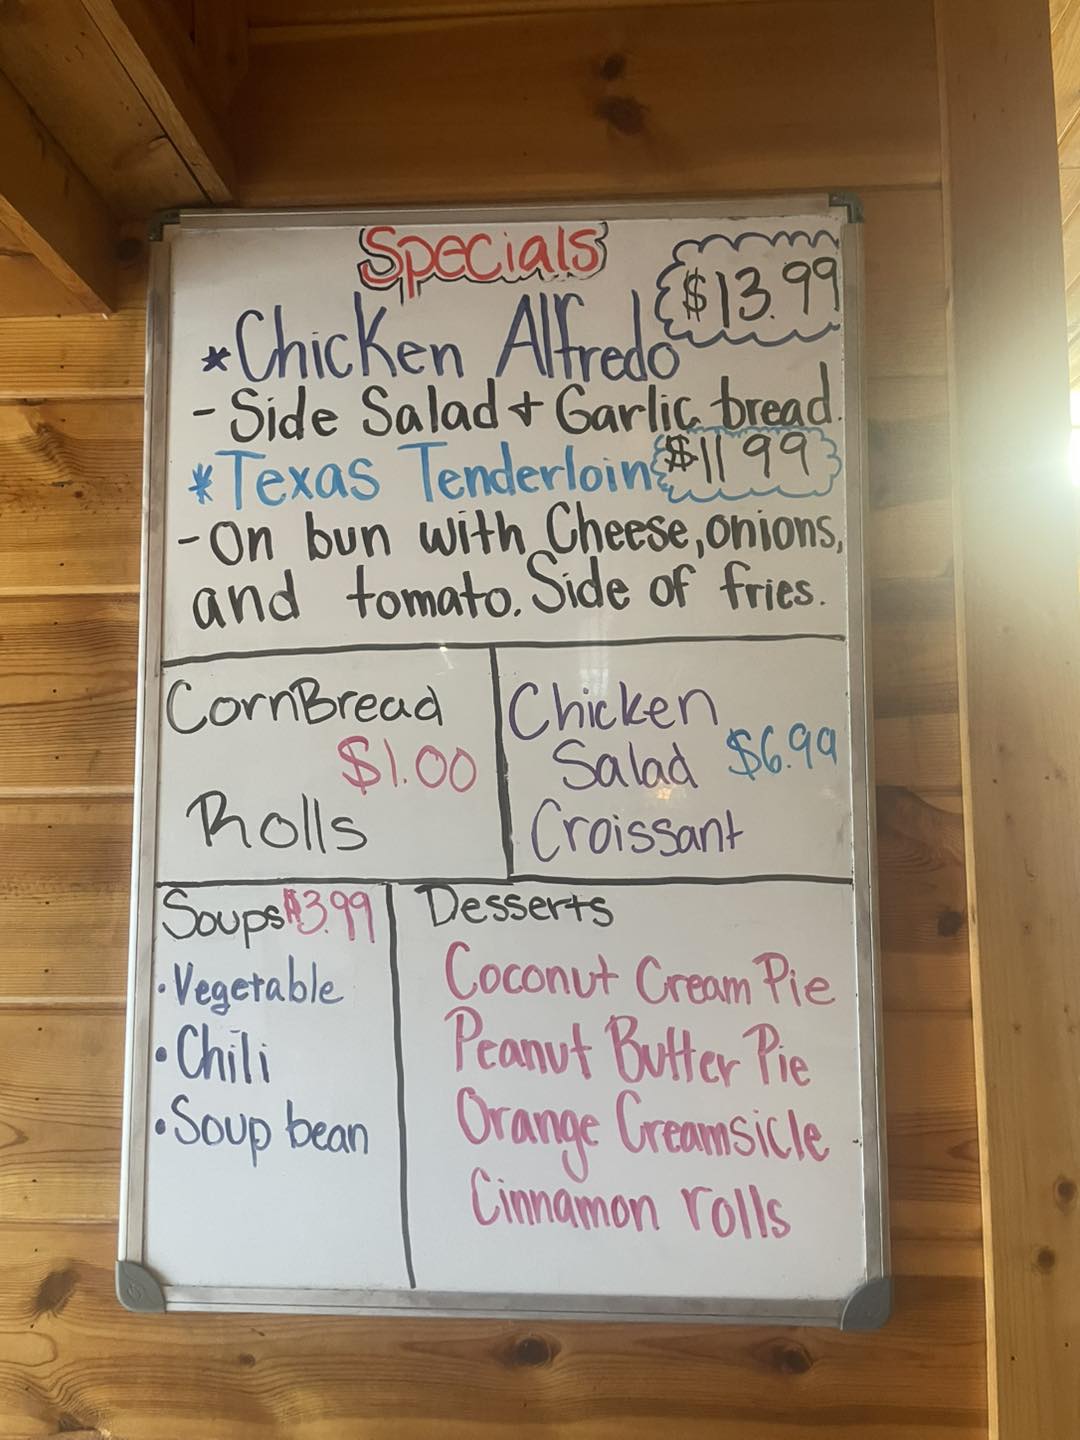 Specials
$13.99
*Chicken Alfredo
- Side Salad + Garlic bread.
*Texas Tenderloin $11.99
- On bun with Cheese, onions,
and tomato. Side of fries.
CornBread
$1.00
Rolls
Chicken
Salad $6.99
Croissant
Soups $3.99
• Vegetable
• Chili
• Soup bean
Desserts
Coconut Cream Pie
Peanut Butter Pie
Orange Creamsicle
Cinnamon rolls